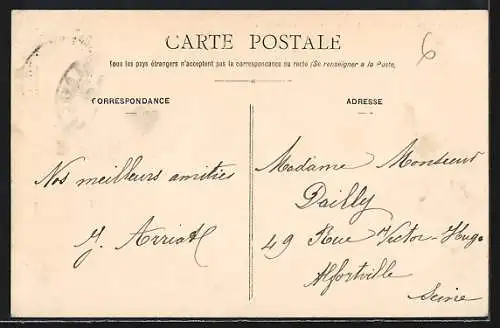 CARTE POSTALE
Tous les pays étrangers n'acceptent pas la correspondance au recto (Se renseigner a la Poste)
CORRESPONDANCE
ADRESSE
6
Nos meilleurs amitiés
Madame Monsieur
Dailly
49 Rue Victor-Hugo
Alfortville
Seine